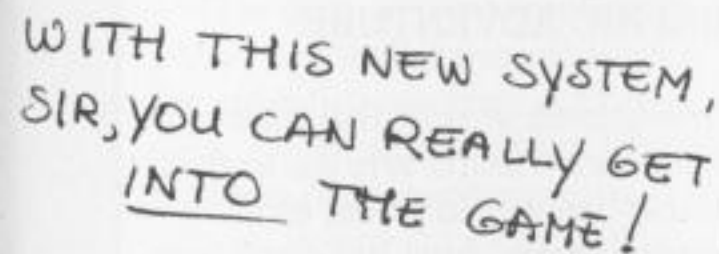 WITH THIS NEW SYSTEM,
SIR, YOU CAN REALLY GET
INTO THE GAME!